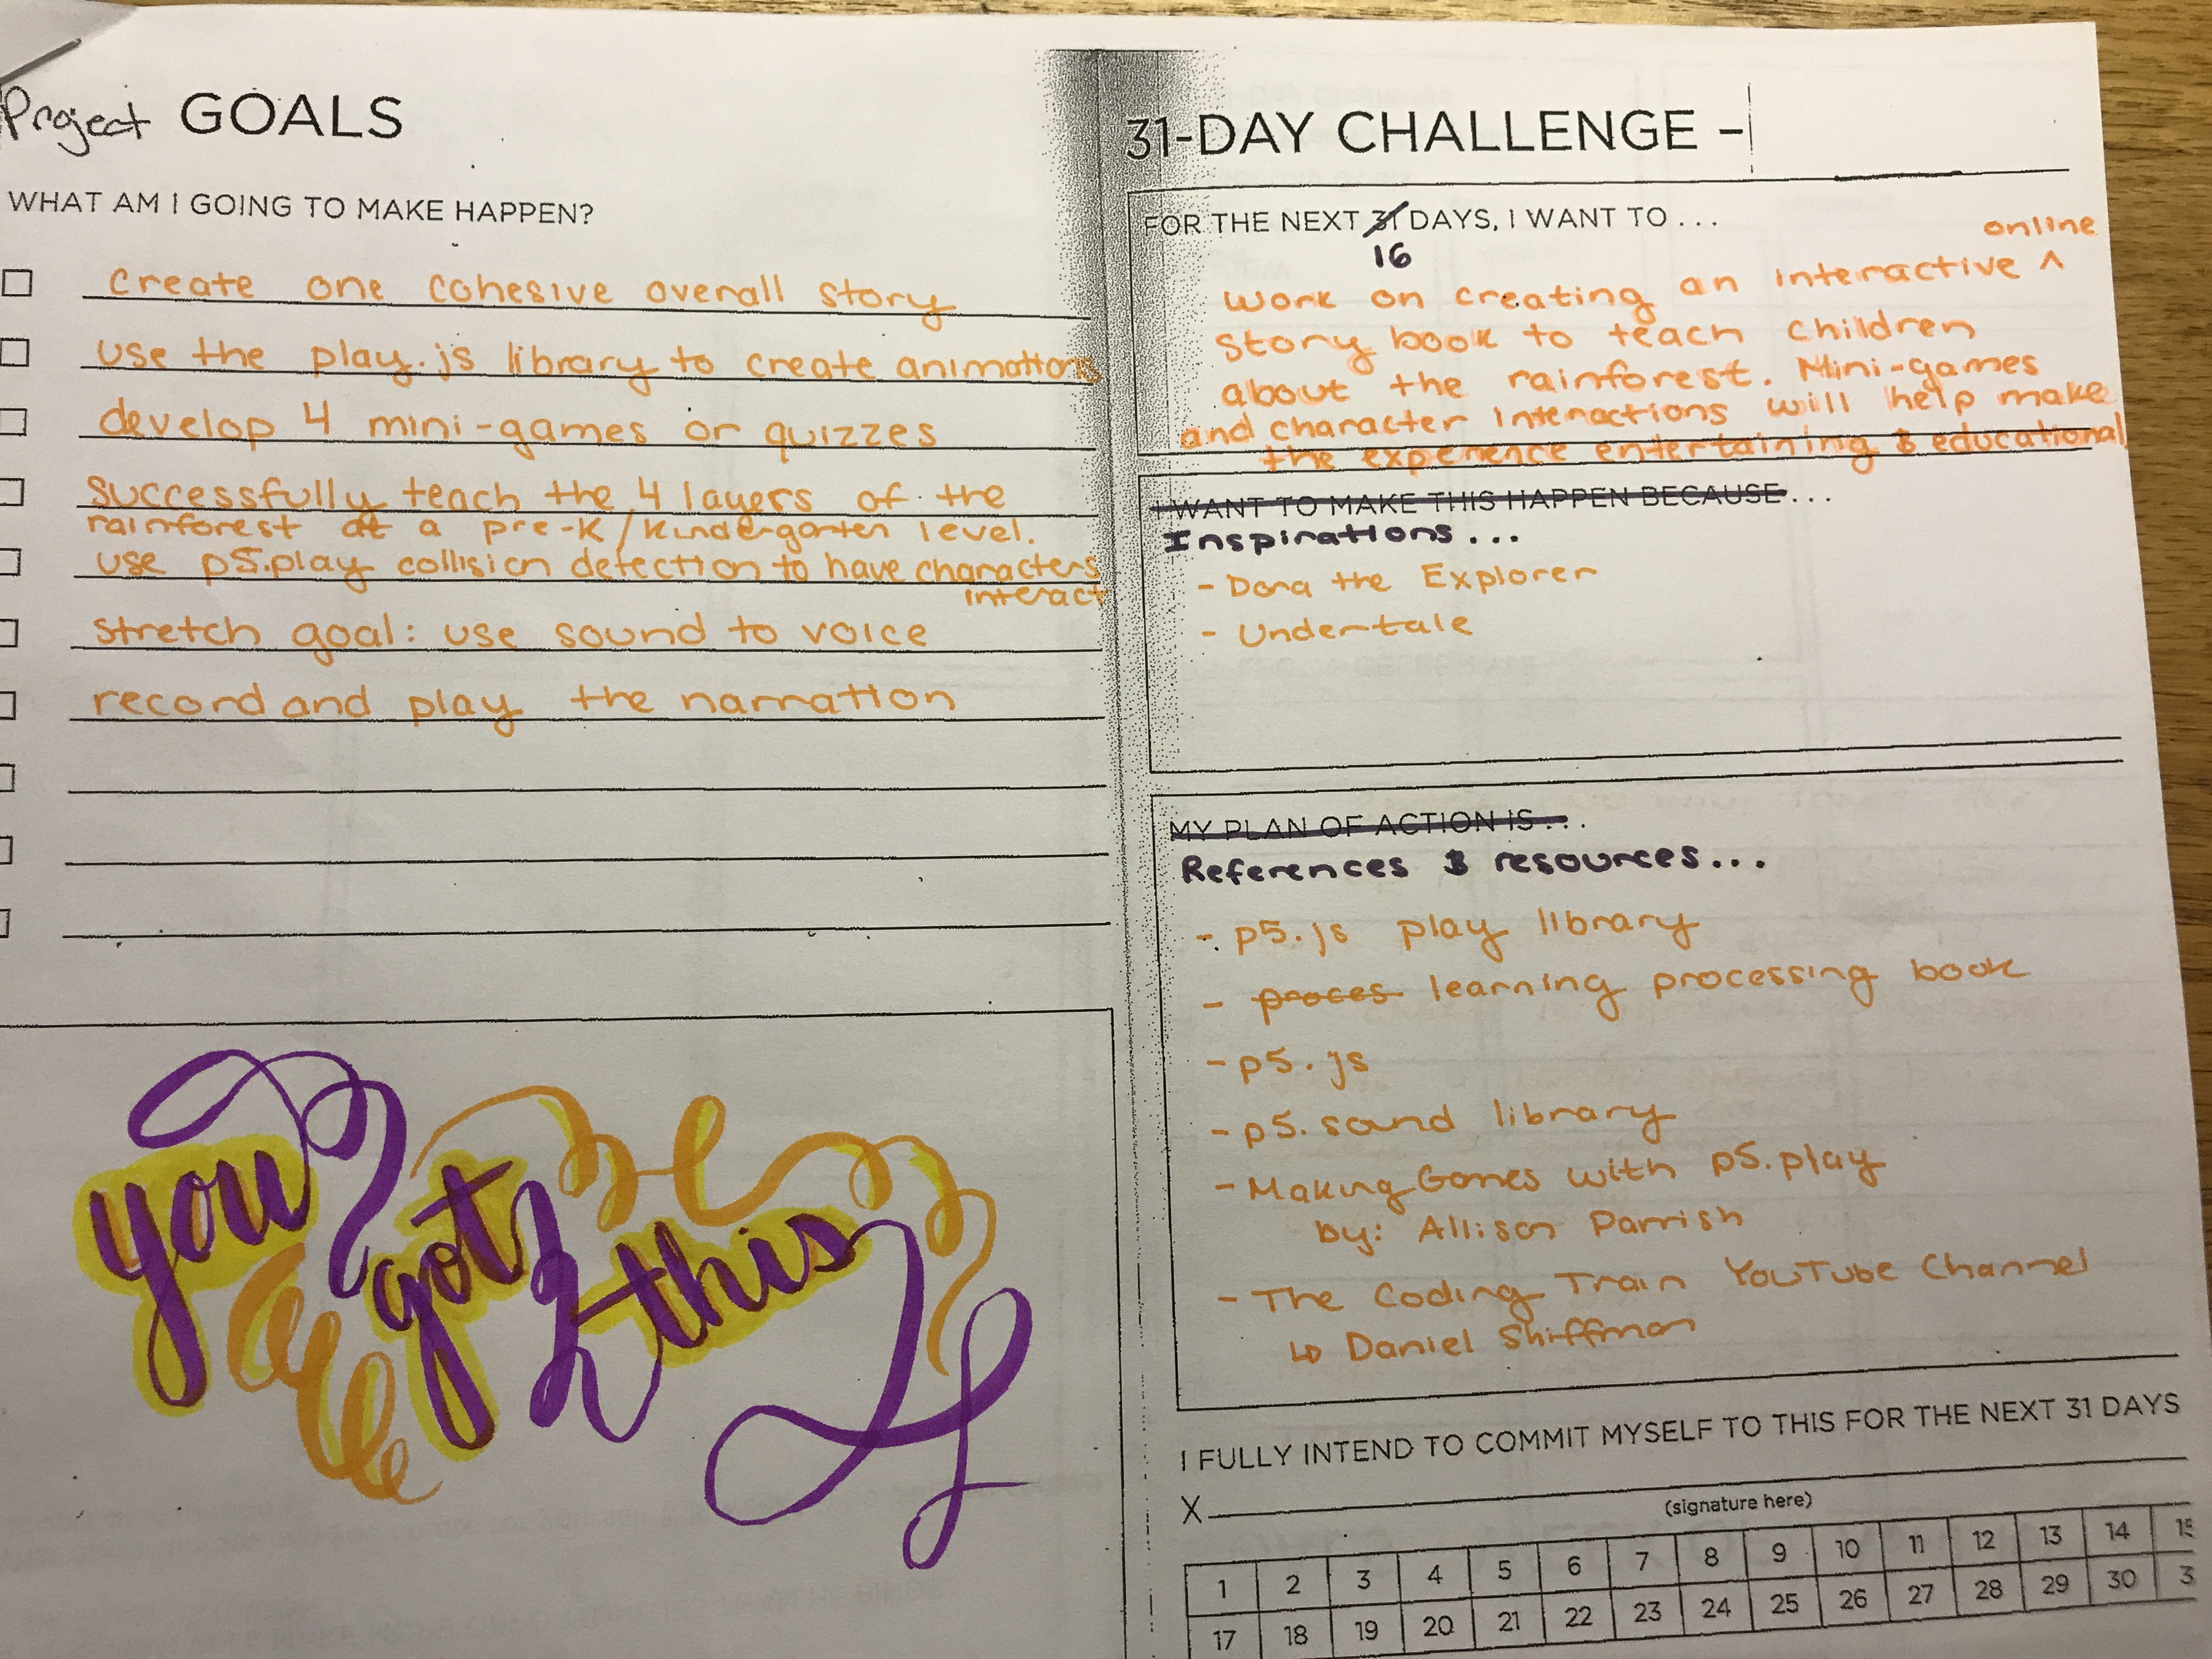 Project GOALS
WHAT AM I GOING TO MAKE HAPPEN?
create one cohesive overall story
use the play.js library to create animations
develop 4 mini-games or quizzes
successfully teach the 4 layers of the
rainforest at a pre-K/kindergarten level.
use p5.play collision detection to have characters
interact
stretch goal: use sound to voice
record and play the narration
you got this
31-DAY CHALLENGE –
FOR THE NEXT 31 DAYS, I WANT TO . . .
16
online
work on creating an interactive ^
story book to teach children
about the rainforest. Mini-games
and character interactions will help make
the experience entertaining & educational
I WANT TO MAKE THIS HAPPEN BECAUSE . . .
Inspirations...
- Dora the Explorer
- Undertale
MY PLAN OF ACTION IS . . .
References & resources...
- p5.js play library
- proces learning processing book
- p5.js
- p5.sound library
- Making Games with p5.play
by: Allison Parrish
- The Coding Train YouTube Channel
↳ Daniel Shiffman
I FULLY INTEND TO COMMIT MYSELF TO THIS FOR THE NEXT 31 DAYS
X
(signature here)
1 2 3 4 5 6 7 8 9 10 11 12 13 14 15
17 18 19 20 21 22 23 24 25 26 27 28 29 30